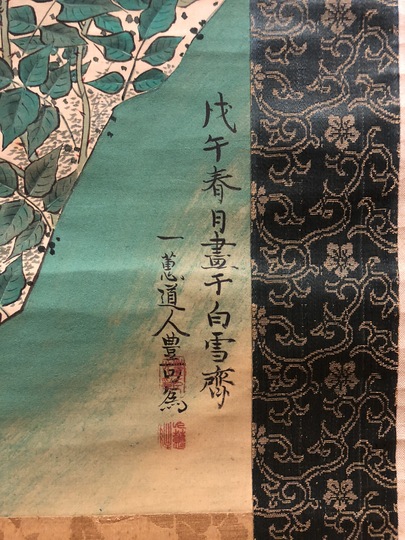 戊午春月畫于白雪齋
一蕙道人豊可為